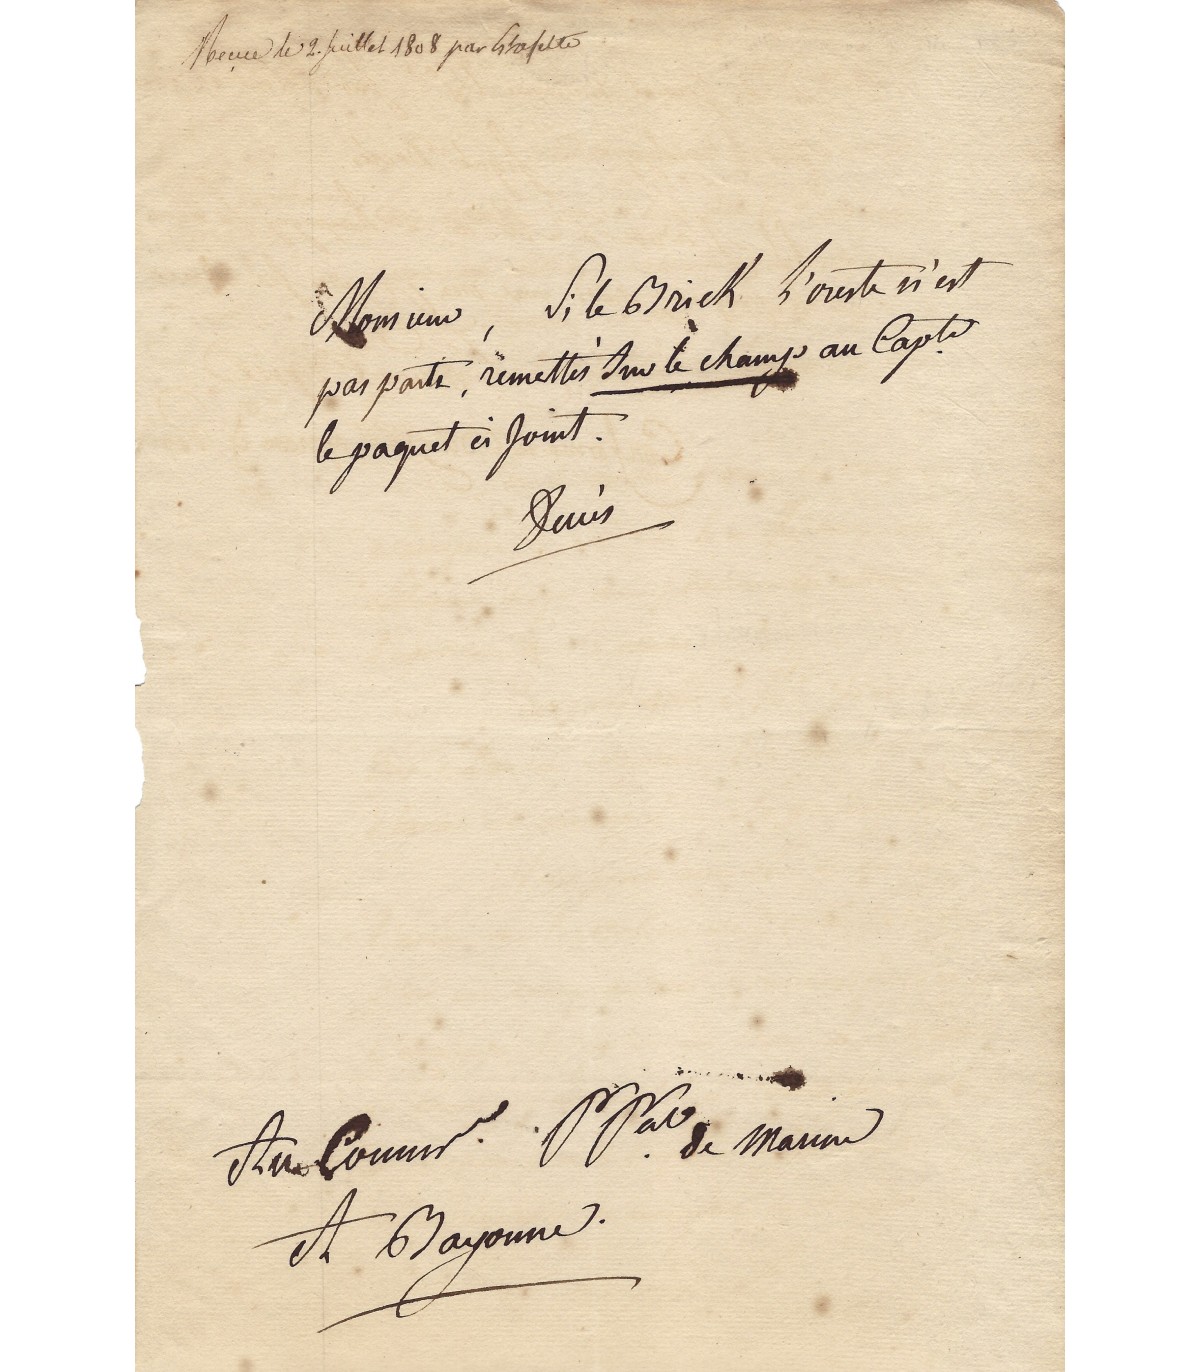 Reçue le 2. Juillet 1808 par Estafette
Monsieur, Si le Brick l'oreste n'est
pas parti, remettés Sur le champ au Capte.
le paquet ci Joint.
Decrès
Au Commre. Ppal. de Marine
A Bayonne.